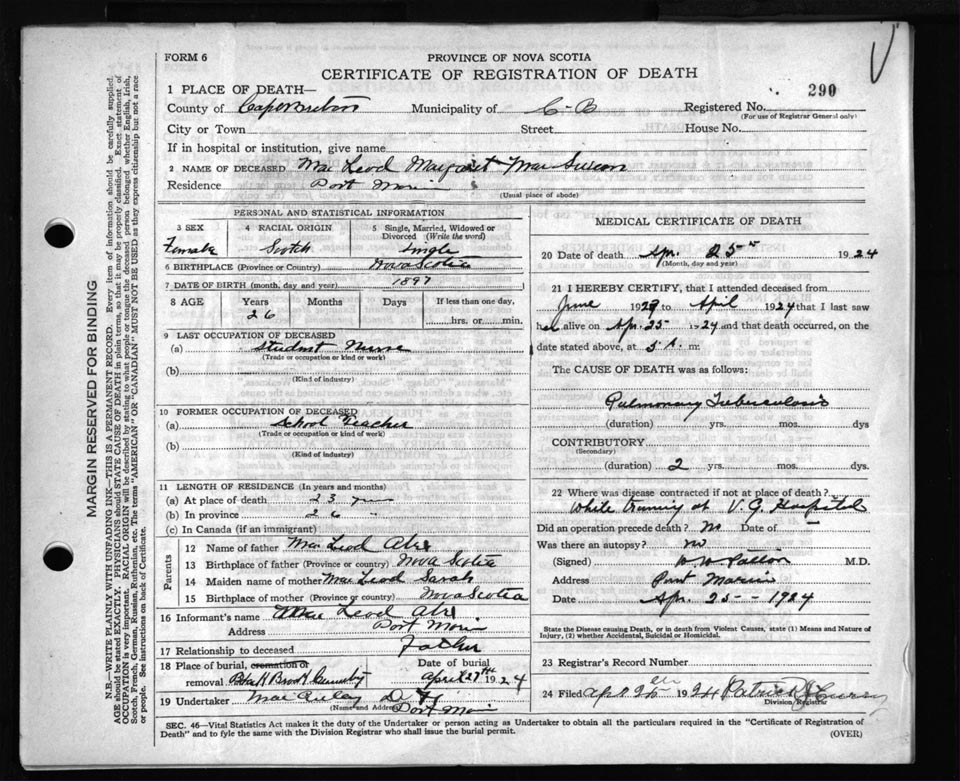 FORM 6
PROVINCE OF NOVA SCOTIA
CERTIFICATE OF REGISTRATION OF DEATH
290
1 PLACE OF DEATH—
County of Cape Breton Municipality of C-B Registered No.
(For use of Registrar General only)
City or Town Street House No.
If in hospital or institution, give name
2 NAME OF DECEASED Mac Leod Margaret
Residence Port Morien
(Usual place of abode)
PERSONAL AND STATISTICAL INFORMATION
3 SEX 4 RACIAL ORIGIN 5 Single, Married, Widowed or
Divorced (Write the word)
Female Scotch Single
6 BIRTHPLACE (Province or Country) Nova Scotia
7 DATE OF BIRTH (month, day and year) 1897
8 AGE Years Months Days If less than one day,
26 hrs. or min.
9 LAST OCCUPATION OF DECEASED
(a) Student Nurse
(Trade or occupation or kind of work)
(b)
(Kind of industry)
10 FORMER OCCUPATION OF DECEASED
(a) School Teacher
(Trade or occupation or kind of work)
(b)
(Kind of industry)
11 LENGTH OF RESIDENCE (In years and months)
(a) At place of death 23 yrs
(b) In province 26 "
(c) In Canada (if an immigrant)
Parents
12 Name of father Mac Leod
13 Birthplace of father (Province or country) Nova Scotia
14 Maiden name of mother Mac Leod Sarah
15 Birthplace of mother (Province or country) Nova Scotia
16 Informant's name Mac Leod
Address Port Morien
17 Relationship to deceased Father
18 Place of burial, cremation or Date of burial
removal Brook Cemetery April 27th 1924
19 Undertaker
(Name and Address) Port Morien
MEDICAL CERTIFICATE OF DEATH
20 Date of death Apr. 25th 1924
(Month, day and year)
21 I HEREBY CERTIFY, that I attended deceased from
June to April 1924 that I last saw
her alive on Apr. 25 1924 and that death occurred, on the
date stated above, at 5 A. m:
The CAUSE OF DEATH was as follows:
Pulmonary Tuberculosis
(duration) yrs. mos. dys
CONTRIBUTORY
(Secondary)
(duration) 2 yrs. mos. dys.
22 Where was disease contracted if not at place of death?
While training at V. G. Hospital
Did an operation precede death? No Date of
Was there an autopsy? no
(Signed) M.D.
Address Port Morien
Date Apr. 25 - 1924
State the Disease causing Death, or in death from Violent Causes, state (1) Means and Nature of
Injury, (2) whether Accidental, Suicidal or Homicidal.
23 Registrar's Record Number
24 Filed Apr 26th 1924 Patrick
Division Registrar
SEC. 46—Vital Statistics Act makes it the duty of the Undertaker or person acting as Undertaker to obtain all the particulars required in the "Certificate of Registration of
Death" and to fyle the same with the Division Registrar who shall issue the burial permit.
(OVER)
MARGIN RESERVED FOR BINDING
N.B.—WRITE PLAINLY WITH UNFADING INK—THIS IS A PERMANENT RECORD. Every item of information should be carefully supplied.
AGE should be stated EXACTLY. PHYSICIANS should STATE CAUSE OF DEATH in plain terms, so that it may be properly classified. Exact statement of
OCCUPATION is very important. RACIAL ORIGIN will be described by stating to what people or tongue the deceased person belonged, whether English, Irish,
Scotch, French, German, Russian, Ruthenian, etc. The terms "AMERICAN" OR "CANADIAN" MUST NOT BE USED as they express citizenship but not a race
or people. See instructions on back of Certificate.